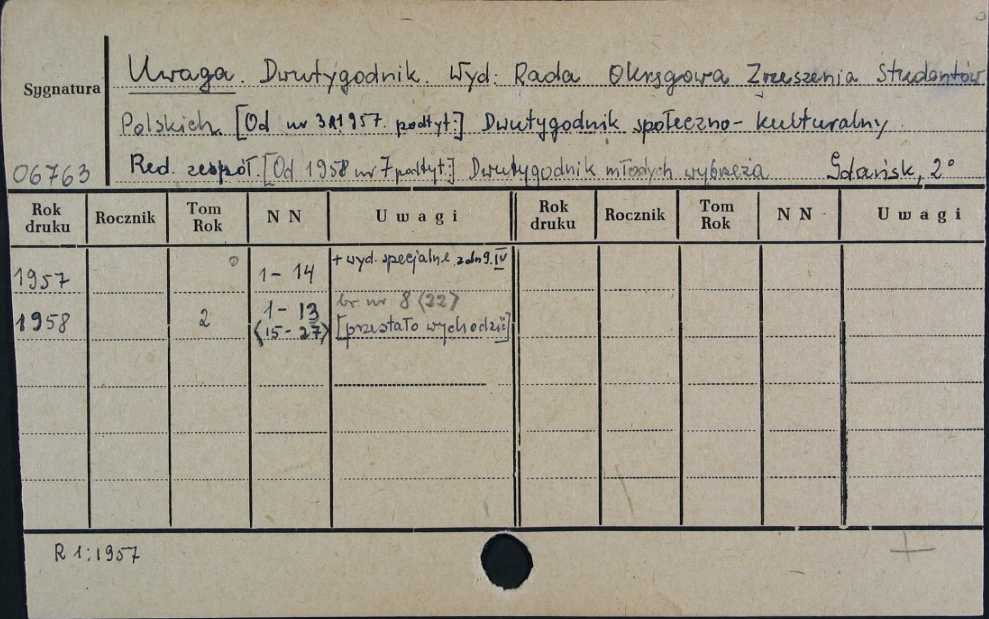 Uwaga. Dwutygodnik. Wyd: Rada Okręgowa Zrzeszenia Studentów
Sygnatura
Polskich. [Od nr 3 R.1957. podtyt:] Dwutygodnik społeczno-kulturalny.
06763 Red. zespół. [Od 1958 nr 7 podtyt:] Dwutygodnik młodych wybrzeża Gdańsk, 2°
Rok druku Rocznik Tom Rok N N Uwagi Rok druku Rocznik Tom Rok N N Uwagi
1957 1-14 + wyd. specjalne z dn 9.IV
1958 2 1-13 br nr 8 (22)
(15-27) [przestało wychodzić]
R 1:1957